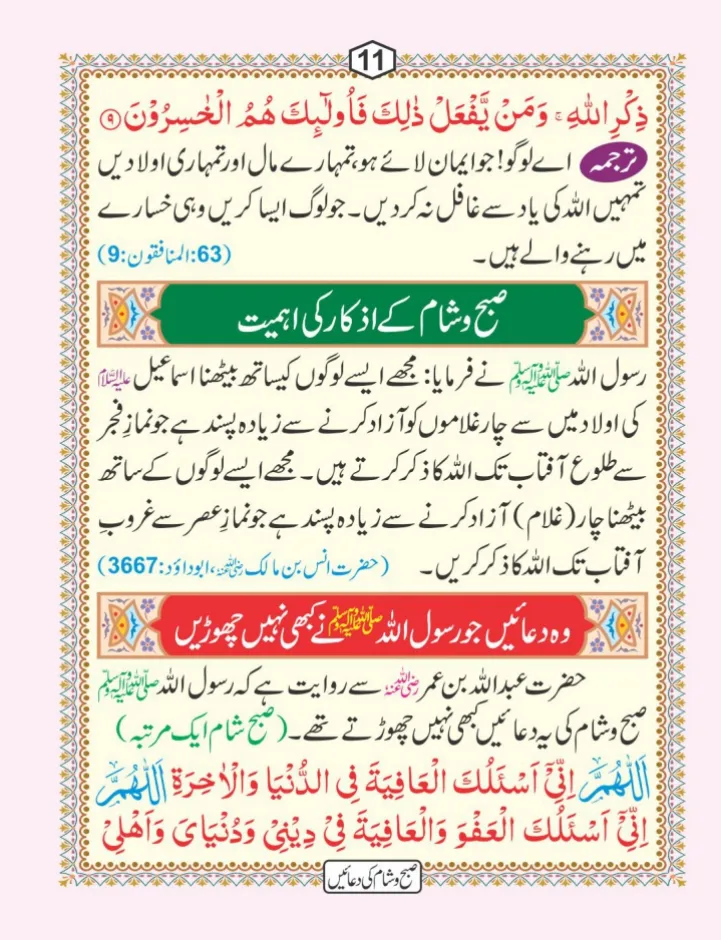 11
ذِكْرِ اللّٰهِ ۚ وَمَنْ يَّفْعَلْ ذٰلِكَ فَاُولٰٓئِكَ هُمُ الْخٰسِرُوْنَ ۹
ترجمہ اے لوگو! جو ایمان لائے ہو، تمہارے مال اور تمہاری اولادیں
تمہیں اللہ کی یاد سے غافل نہ کر دیں۔ جو لوگ ایسا کریں وہی خسارے
میں رہنے والے ہیں۔ (63:المنافقون:9)
صبح و شام کے اذکار کی اہمیت
رسول اللہ ﷺ نے فرمایا: مجھے ایسے لوگوں کیساتھ بیٹھنا اسماعیل علیہ السلام
کی اولاد میں سے چار غلاموں کو آزاد کرنے سے زیادہ پسند ہے جو نمازِ فجر
سے طلوع آفتاب تک اللہ کا ذکر کرتے ہیں۔ مجھے ایسے لوگوں کے ساتھ
بیٹھنا چار (غلام) آزاد کرنے سے زیادہ پسند ہے جو نمازِ عصر سے غروبِ
آفتاب تک اللہ کا ذکر کریں۔ (حضرت انس بن مالک رضی اللہ عنہ، ابوداؤد:3667)
وہ دعائیں جو رسول اللہ ﷺ نے کبھی نہیں چھوڑیں
حضرت عبداللہ بن عمر رضی اللہ عنہ سے روایت ہے کہ رسول اللہ ﷺ
صبح و شام کی یہ دعائیں کبھی نہیں چھوڑتے تھے۔ (صبح شام ایک مرتبہ)
اَللّٰهُمَّ اِنِّيْٓ اَسْئَلُكَ الْعَافِيَةَ فِى الدُّنْيَا وَالْاٰخِرَةِ اَللّٰهُمَّ
اِنِّيْٓ اَسْئَلُكَ الْعَفْوَ وَالْعَافِيَةَ فِيْ دِيْنِيْ وَدُنْيَاىَ وَاَهْلِيْ
صبح و شام کی دعائیں